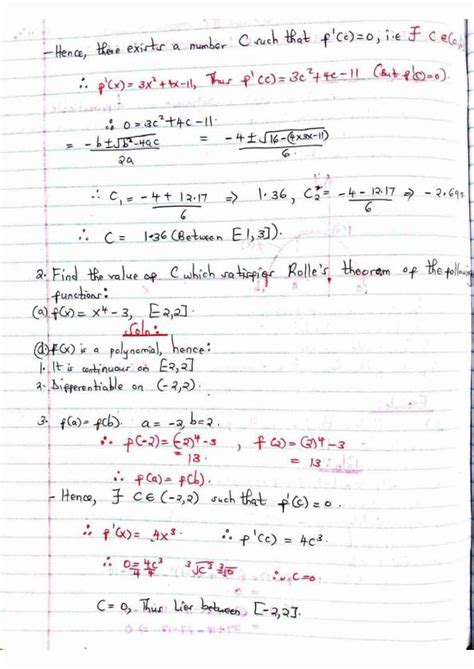 - Hence, there exists a number C such that f'(c)=0, i.e ∃ C∈(a,
∴ f'(x) = 3x²+4x-11, Thus f'(c) = 3c²+4c-11 (But f'(c)=0).
∴ 0 = 3c²+4c-11
= -b±√b²-4ac / 2a = -4±√16-(4x3x-11) / 6
∴ C₁ = -4+12.17 / 6 ⇒ 1.36, C₂ = -4-12.17 / 6 ⇒ -2.69
∴ C = 1.36 (Between [1,3]).
2. Find the value of C which satisfies Rolle's theorem of the following
functions:
(a) f(x) = x⁴-3, [-2,2].
Soln:
(a) f(x) is a polynomial, hence:
1. It is continuous on [-2,2]
2. Differentiable on (-2,2).
3. f(a) = f(b). a = -2, b = 2.
∴ f(-2) = (-2)⁴-3 , f(2) = (2)⁴-3
= 13. = 13.
∴ f(a) = f(b).
- Hence, ∃ C∈(-2,2) such that f'(c) = 0.
∴ f'(x) = 4x³ ∴ f'(c) = 4c³
∴ 0/4 = 4c³/4 ³√c³ ³√0 ∴ C=0.
C=0, Thus Lies between [-2,2].